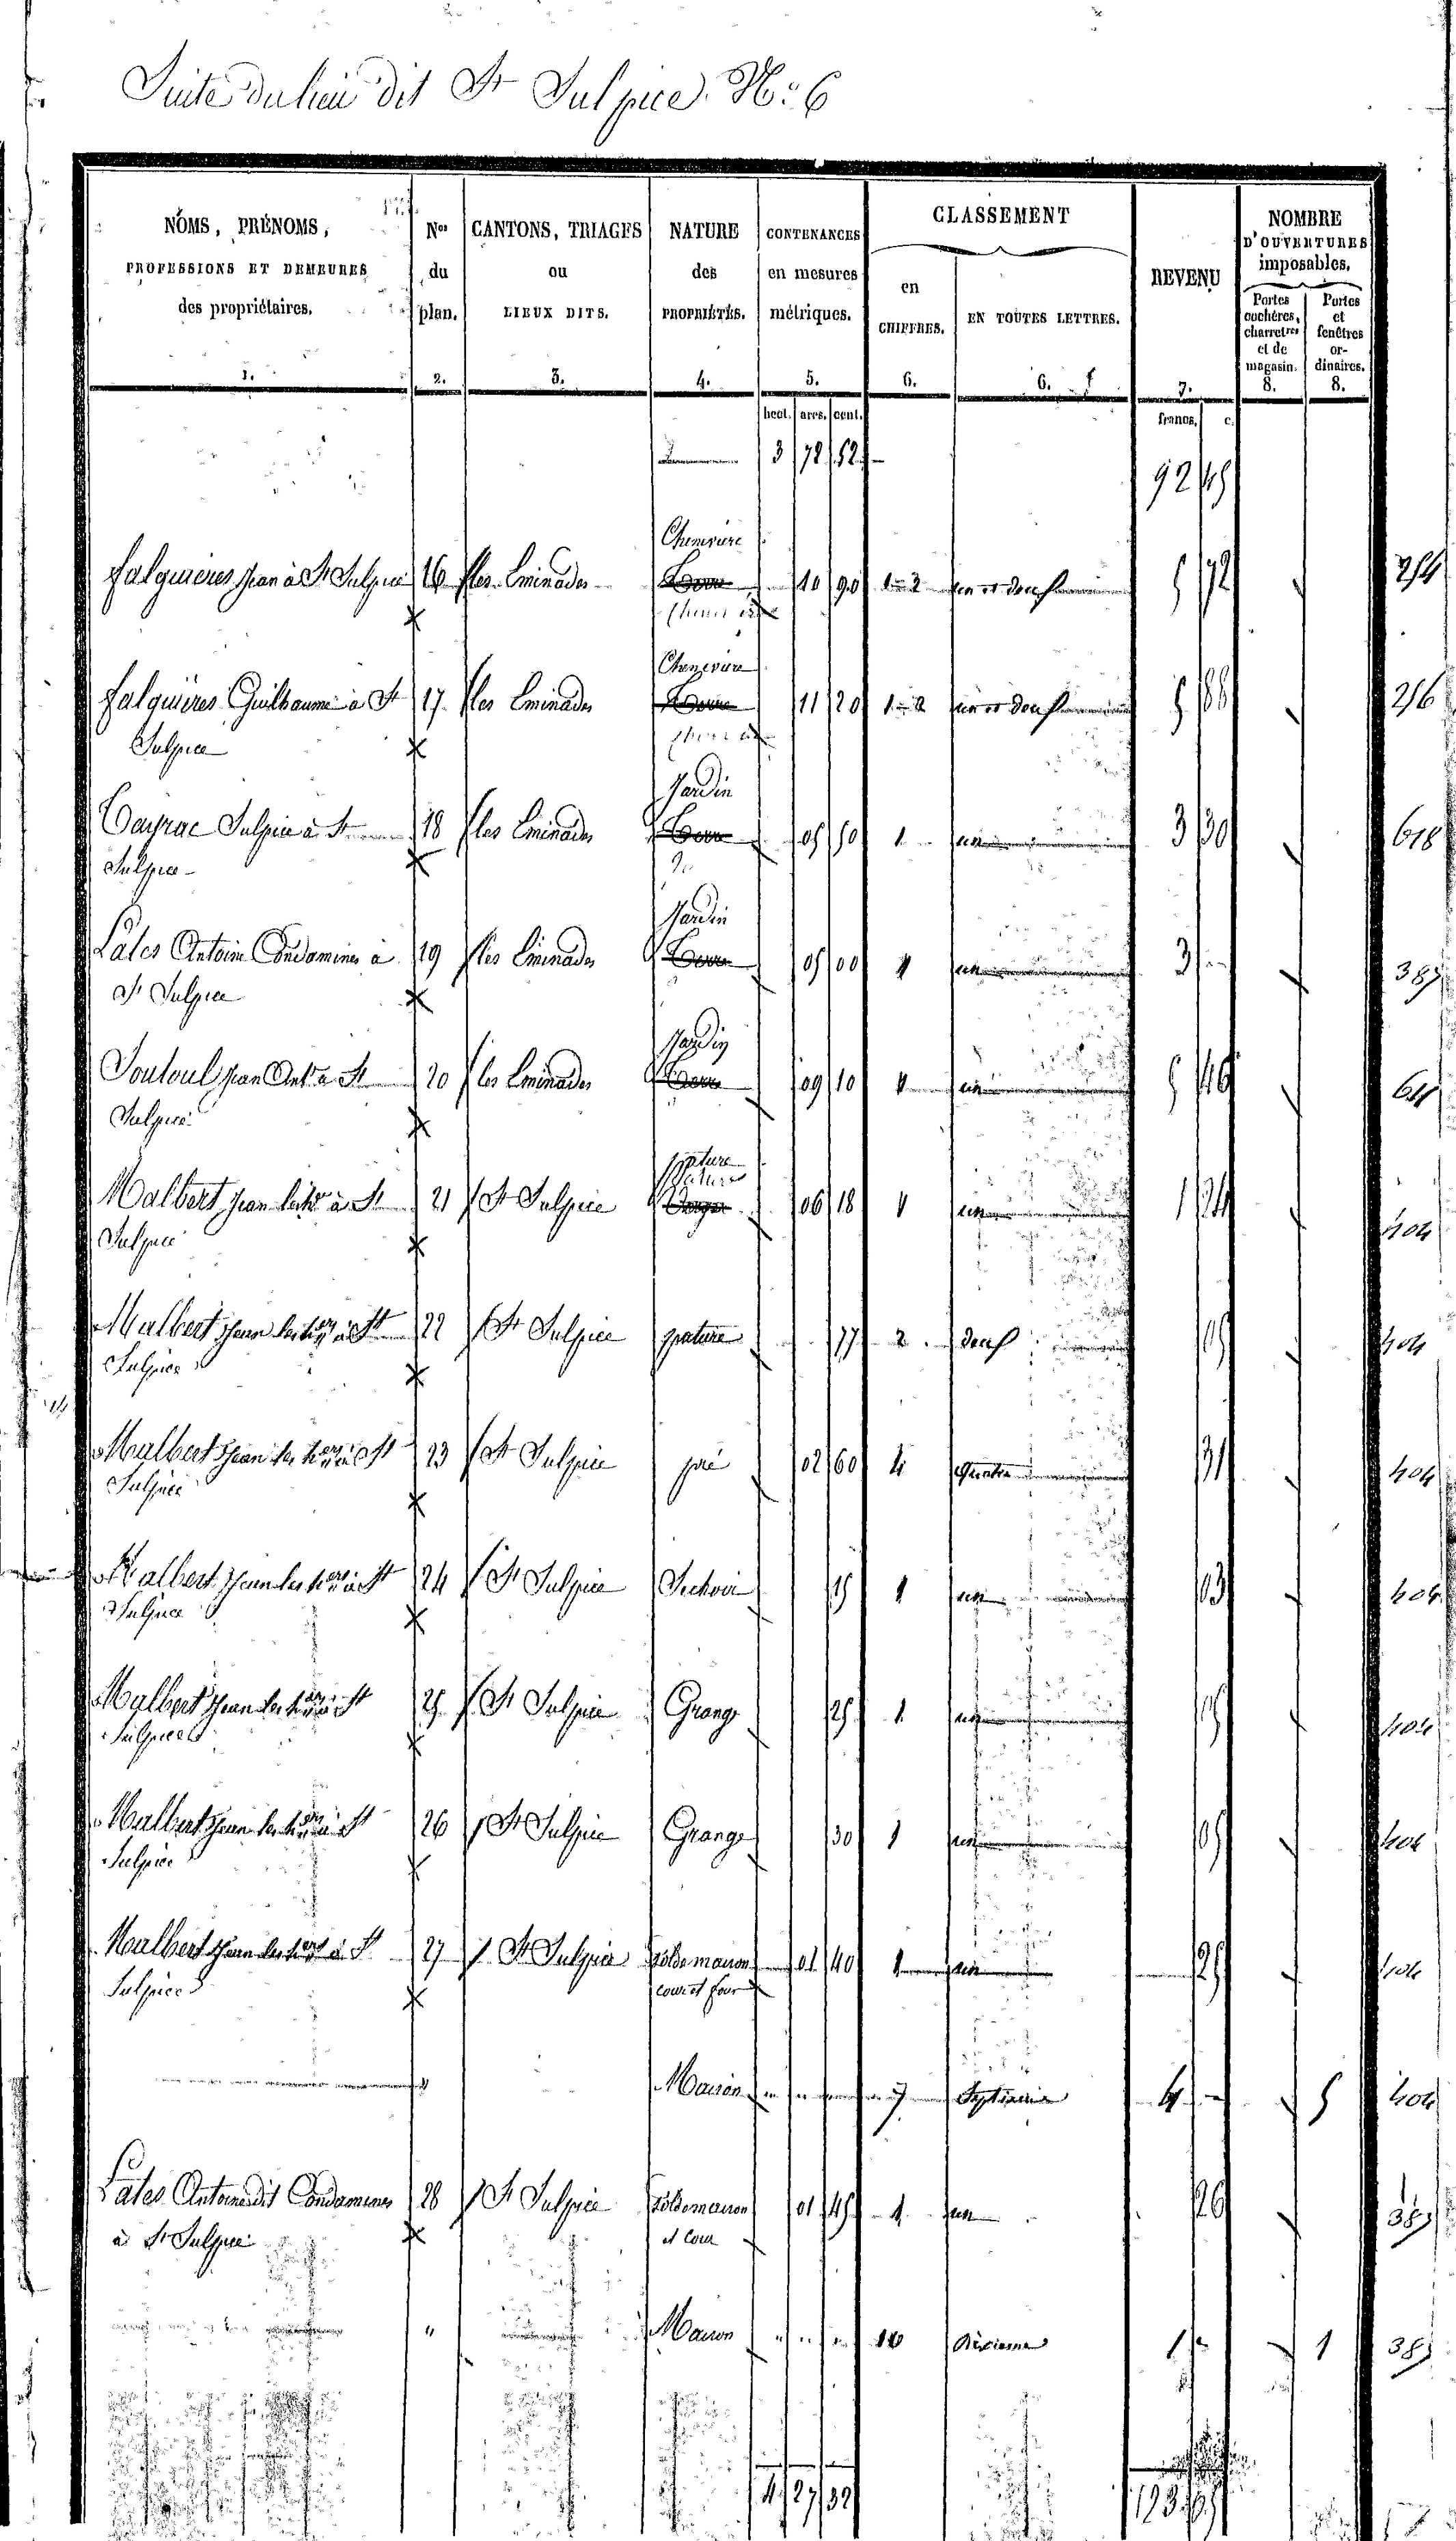 Suite du lieu dit St Sulpice. N.o 6
NOMS, PRÉNOMS, PROFESSIONS ET DEMEURES des propriétaires. 1.
Nos du plan. 2.
CANTONS, TRIAGES ou LIEUX DITS. 3.
NATURE des PROPRIÉTÉS. 4.
CONTENANCES en mesures métriques. 5.
CLASSEMENT
en CHIFFRES. 6.
EN TOUTES LETTRES. 6.
REVENU 7.
NOMBRE D'OUVERTURES imposables.
Portes cochères, charretres et de magasin. 8.
Portes et fenêtres ordinaires. 8.
hect. ares. cent. francs. c.
3 78 52 92 45
Chenevière
falguières Jean à St Sulpice 16 les Eminades Terre 10 90 1-2 un et deux 5 72 254
Chenevière
falguières Guilhaume à St 17 les Eminades Terre 11 20 1-2 un et deux 5 88 256
Sulpice
Jardin
Cayrac Sulpice à St 18 les Eminades Terre 05 50 1 un 3 30 618
Sulpice
Jardin
Lales Antoine Condamines à 19 les Eminades Terre 05 00 1 un 3 - 385
St Sulpice
Jardin
Soutoul Jean Ant. à St 20 les Eminades Terre 09 10 1 un 5 46 611
Sulpice
pature
pature
Malbert Jean les hers à St 21 St Sulpice Verger 06 18 1 un 1 24 404
Sulpice
Malbert Jean les hers à St 22 St Sulpice pature 77 2 deux 05 404
Sulpice
Malbert Jean les hers à St 23 St Sulpice pré 02 60 4 Quatre 31 404
Sulpice
Malbert Jean les hers à St 24 St Sulpice Sechoir 15 1 un 03 404
Sulpice
Malbert Jean les hers à St 25 St Sulpice Grange 25 1 un 05 404
Sulpice
Malbert Jean les hers à St 26 St Sulpice Grange 30 1 un 05 404
Sulpice
Malbert Jean les hers à St 27 St Sulpice sol de maison 01 40 1 un 25 404
Sulpice cour et four
" Maison 7 Septième 4 - 5 404
Lales Antoine dit Condamines 28 St Sulpice sol de maison 01 45 1 un 26 385
à St Sulpice et Cour
" Maison 10 Dixième 1 - 1 385
4 27 32 123 05